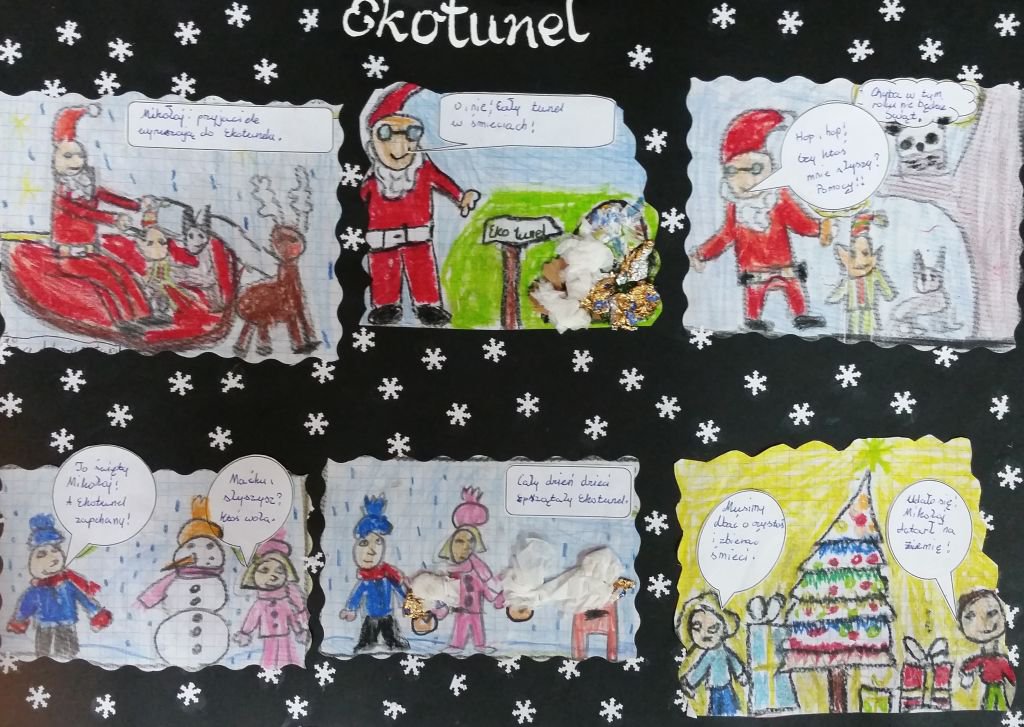 Ekotunel
Mikołaj i przyjaciele
wyruszają do Ekotunelu.
O, nie! Cały tunel
w śmieciach!
Eko tunel
Hop, hop!
Czy ktoś
mnie słyszy?
Pomocy!!
Chyba w tym
roku nie będzie
Świąt.
To święty
Mikołaj!
A Ekotunel
zapchany!
Maćku,
słyszysz?
Ktoś woła.
Cały dzień dzieci
sprzątały Ekotunel.
Musimy
dbać o czystość
i zbierać
śmieci.
Udało się!
Mikołaj
dotarł na
Ziemię!